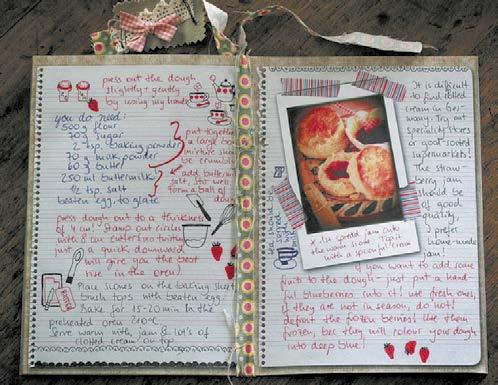 press out the dough
slightly + gently
by using my hands
you do need:
500 g flour
70g sugar
2 tsp. baking powder
70 g milk powder
60 g butter
put together
a large bowl
mixture should
be crumbly
250 ml buttermilk
1/2 tsp. salt
beaten egg, to glaze
add buttermilk
salt, stir well
form a ball of
dough
press dough out to a thickness
of 4 cm! Stamp out circles
with 8 cm cutter (no twisting
just a quick downward
will give you the best
rise in the oven)
Place scones on the baking sheet
brush tops with beaten egg.
Bake for 15-20 min. in the
preheated oven
Serve warm with jam & lot's of
clotted cream on top
It is difficult
to find clotted
cream in Ger-
many. Try out
speciality stores
or good-sorted
supermarkets!
The straw-
berry jam
should be
of good
quality,
I prefer
home-made
jam!
tea should be
* 1st spread jam onto
the warm scone. Top it
with a spoonful cream
if you want to add some
fruits to the dough - just put a hand
ful blueberries into it! use fresh ones,
if they are not in season, do not
defrost the frozen berries. Use them
frozen, bec. they will colour your dough
into deep blue!